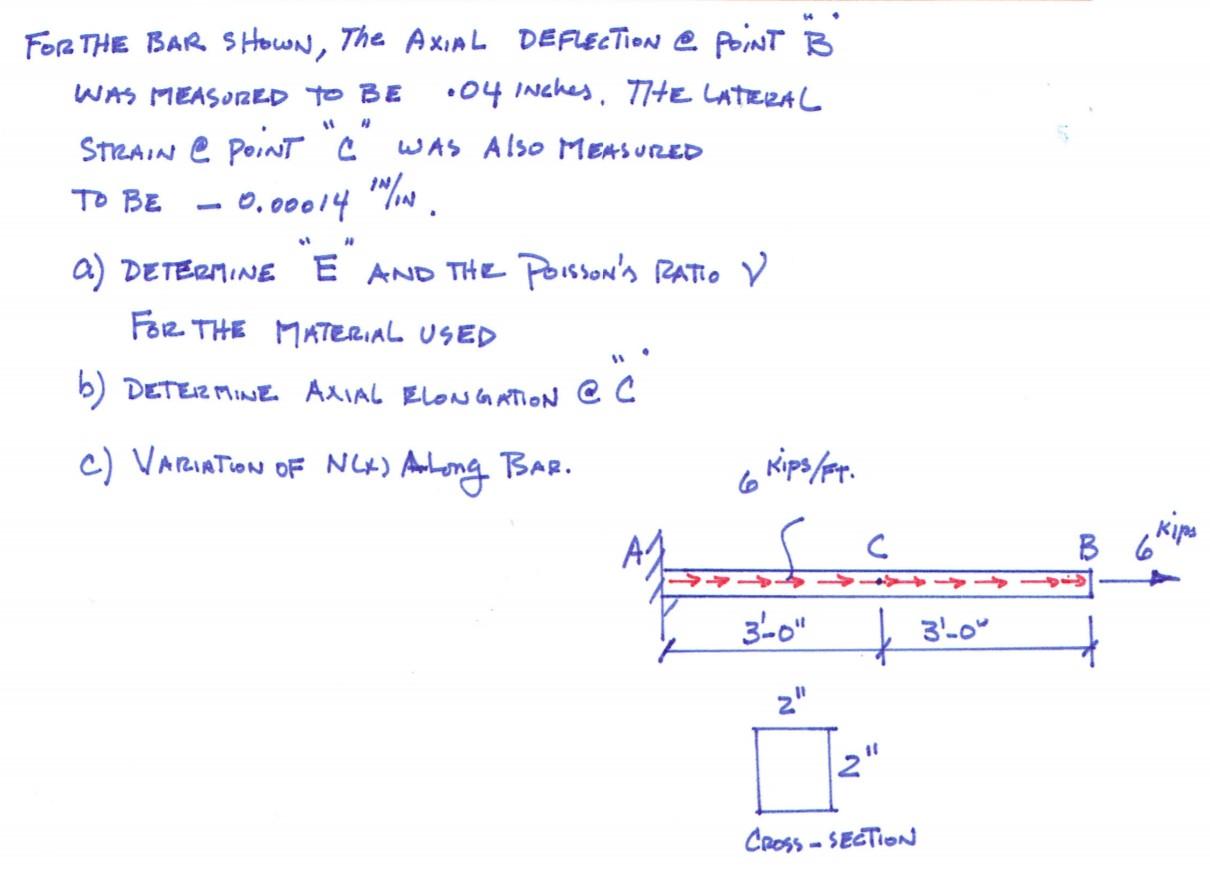 FOR THE BAR SHOWN, The AXIAL DEFLECTION @ POINT "B"
WAS MEASURED TO BE .04 INches. THE LATERAL
STRAIN @ POINT "C" WAS Also MEASURED
TO BE - 0.00014 IN/IN.
a) DETERMINE "E" AND THE POISSON'S RATIO ν
FOR THE MATERIAL USED
b) DETERMINE AXIAL ELONGATION @ "C"
c) VARIATION OF N(X) ALong BAR.
6 Kips/FT.
A C B 6 Kips
3'-0" 3'-0"
2"
2"
CROSS-SECTION